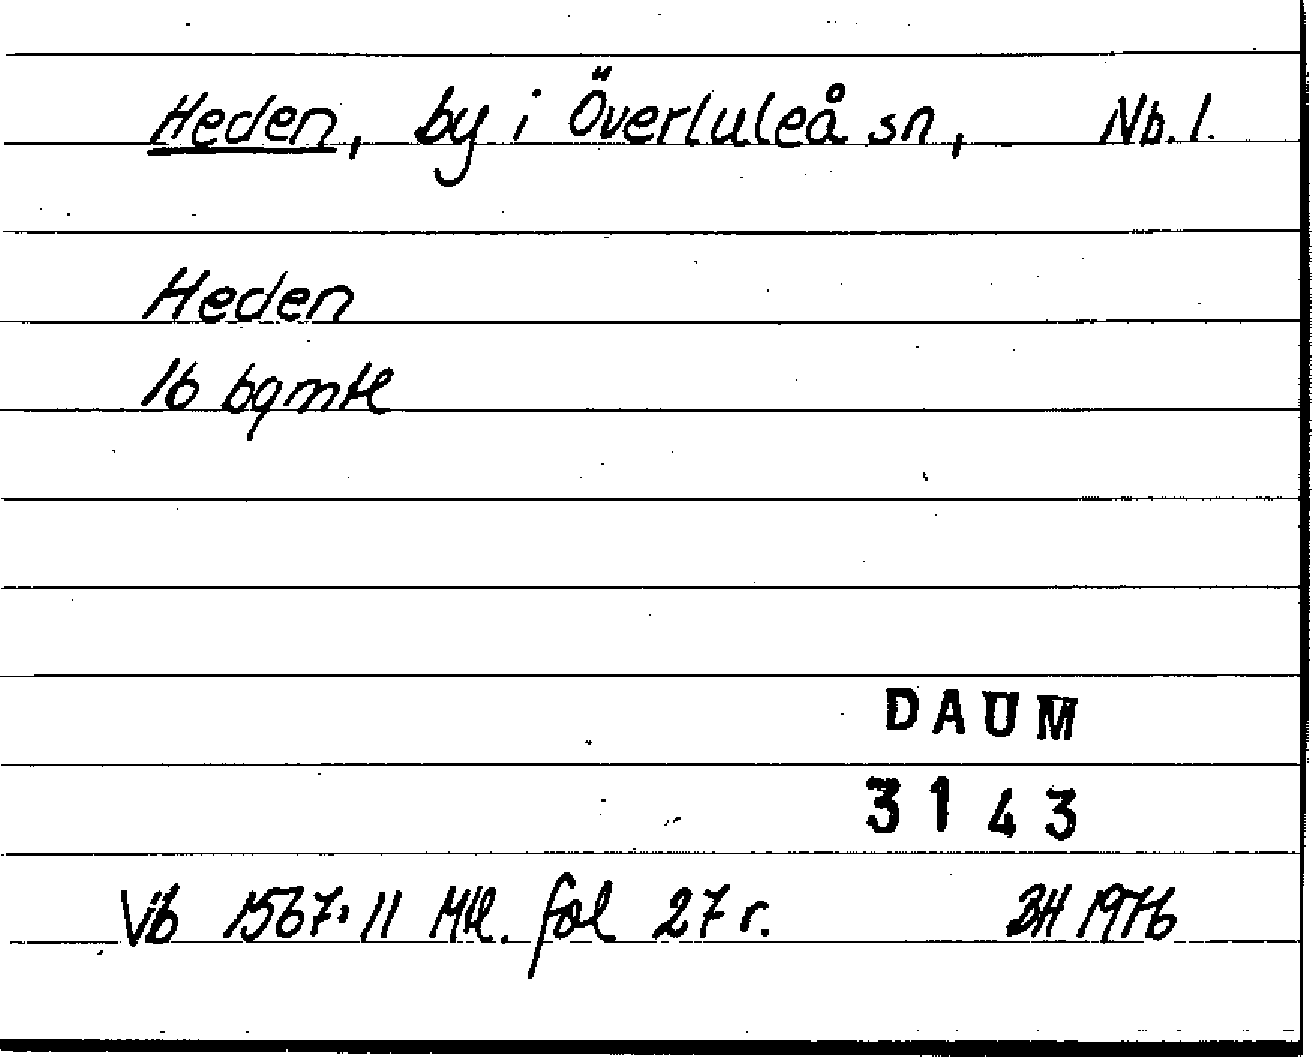 Heden, by i Överluleå sn, Nb. l.
Heden
16 bgmtl
DAUM
3143
Vb 1567:11 Mtl. fol 27 r. BH 1976